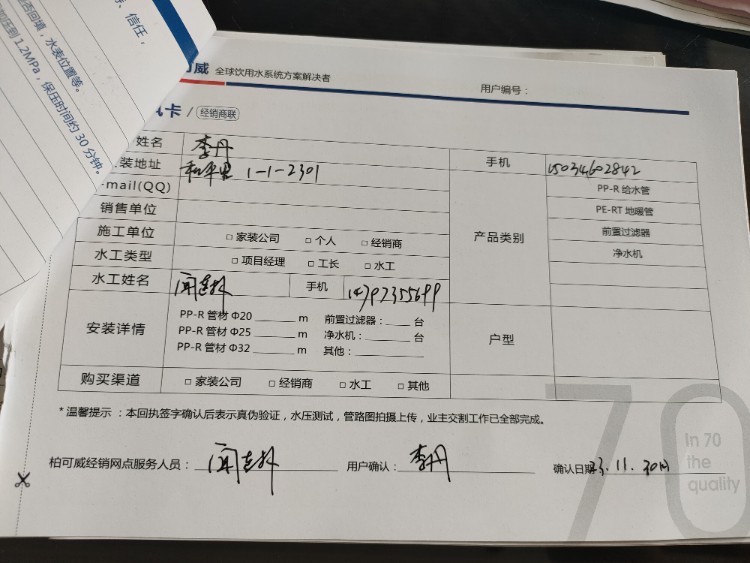 、信任，
否回填，水表位置等。
加压到1.2MPa，保压时间约30分钟。
可威 全球饮用水系统方案解决者
用户编号：
卡 / 经销商联
姓名 李丹 手机 15034602842
装地址 和平里 1-1-2301
-mail(QQ)
销售单位
施工单位 □ 家装公司 □ 个人 □ 经销商
水工类型 □ 项目经理 □ 工长 □ 水工
产品类别
PP-R 给水管
PE-RT 地暖管
前置过滤器
净水机
水工姓名 手机
安装详情
PP-R 管材 Φ20 m 前置过滤器： 台
PP-R 管材 Φ25 m 净水机： 台
PP-R 管材 Φ32 m 其他：
户型
购买渠道 □ 家装公司 □ 经销商 □ 水工 □ 其他
*温馨提示 ：本回执签字确认后表示真伪验证，水压测试，管路图拍摄上传，业主交割工作已全部完成。
柏可威经销网点服务人员：
用户确认： 李丹
确认日期 23.11.30日
70
in 70
the
quality